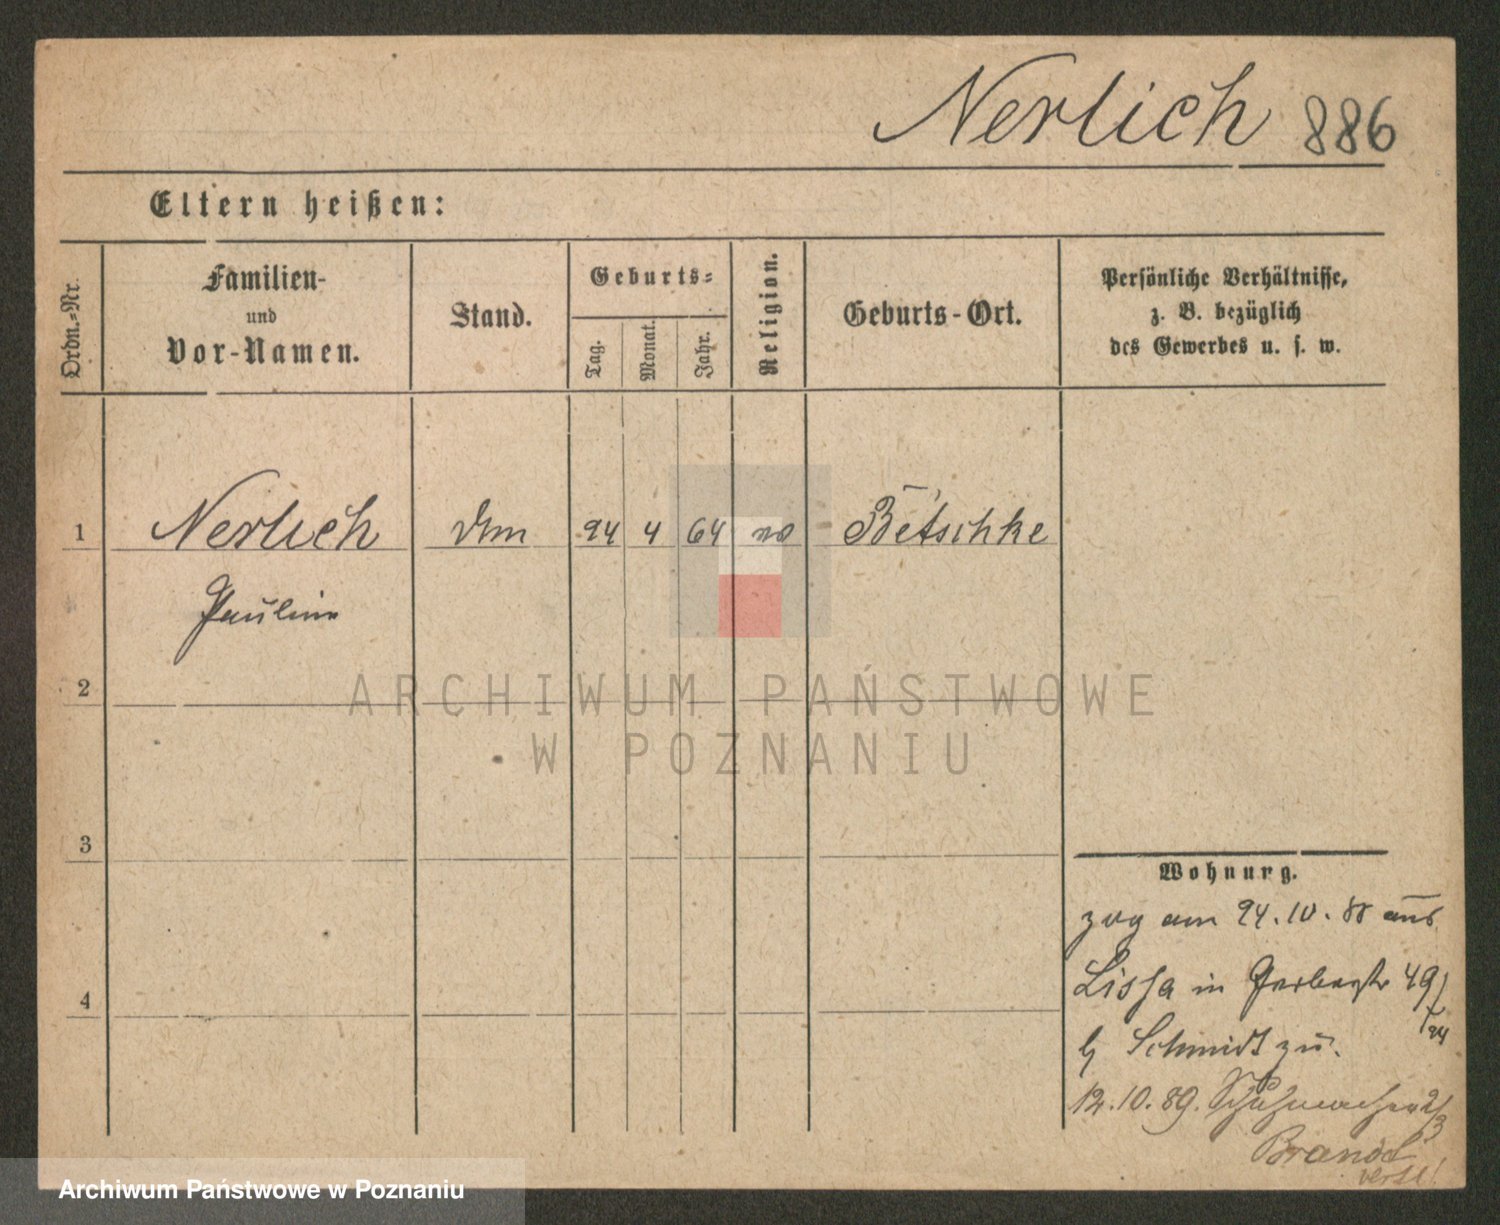 Nerlich 886
Eltern heißen:
Ordn.-Nr.
Familien-
und
Vor-Namen.
Stand.
Geburts-
Tag.
Monat.
Jahr.
Religion.
Geburts-Ort.
Persönliche Verhältnisse,
z. B. bezüglich
des Gewerbes u. s. w.
1 Nerlich 24 4 64 Betschke
Pauline
2
ARCHIWUM PAŃSTWOWE
W POZNANIU
3
4
Wohnung.
zog am 24.10.88 aus
Lissa in Gerberstr 49
b Schmidt zu.
12.10.89. Schuhmacherstr
Brandt
Archiwum Państwowe w Poznaniu